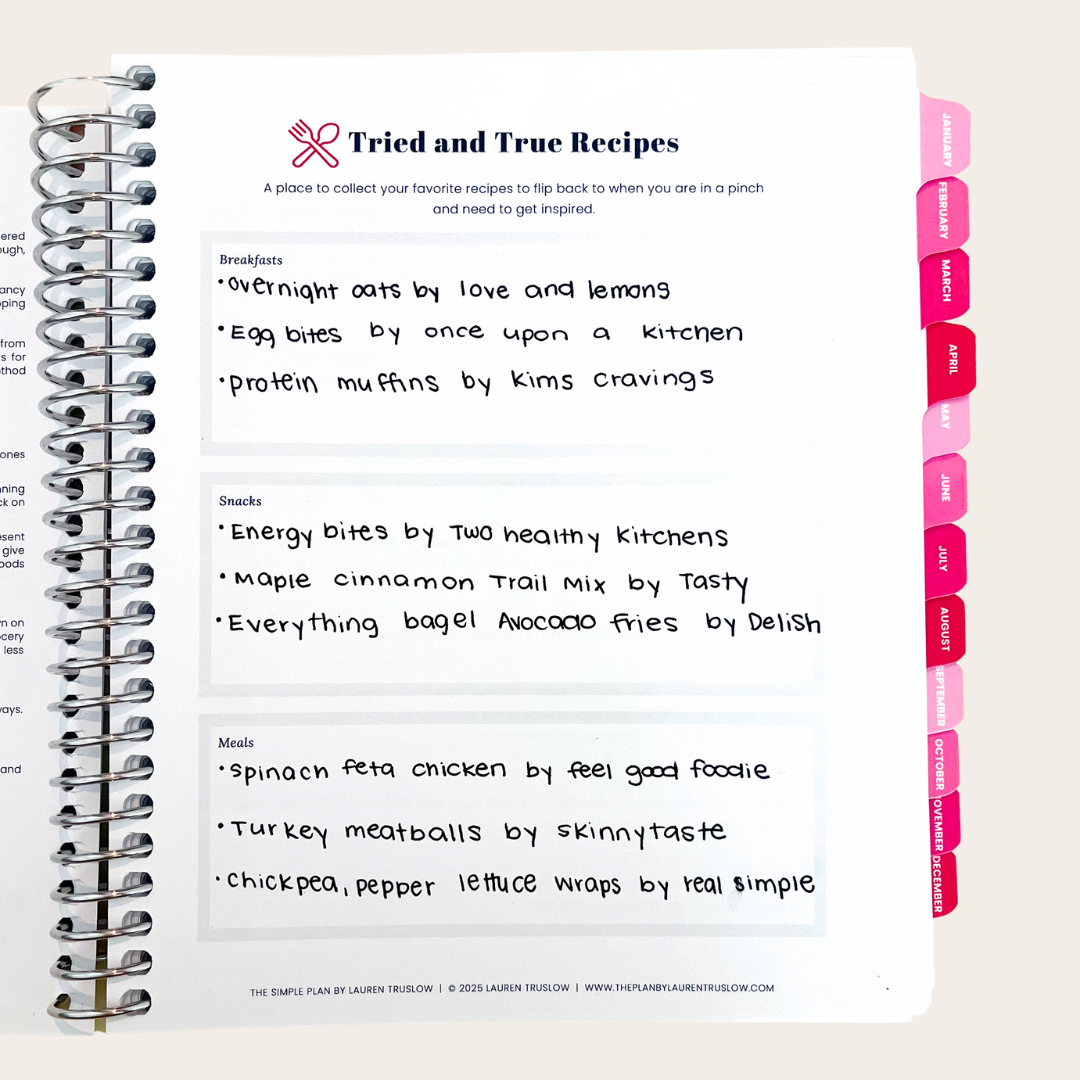 ered
ough,
ancy
pping
from
s for
ethod
ones
nning
ck on
esent
give
oods
n on
cery
less
ways.
and
Tried and True Recipes
A place to collect your favorite recipes to flip back to when you are in a pinch
and need to get inspired.
Breakfasts
•overnight oats by love and lemons
•Egg bites by once upon a kitchen
•protein muffins by kims cravings
Snacks
•Energy bites by Two healthy kitchens
•Maple cinnamon Trail Mix by Tasty
•Everything bagel Avocado fries by Delish
Meals
•spinach feta chicken by feel good foodie
•Turkey meatballs by skinnytaste
•chickpea, pepper lettuce wraps by real simple
THE SIMPLE PLAN BY LAUREN TRUSLOW | © 2025 LAUREN TRUSLOW | WWW.THEPLANBYLAURENTRUSLOW.COM
JANUARY
FEBRUARY
MARCH
APRIL
MAY
JUNE
JULY
AUGUST
SEPTEMBER
OCTOBER
OVEMBER
DECEMBER